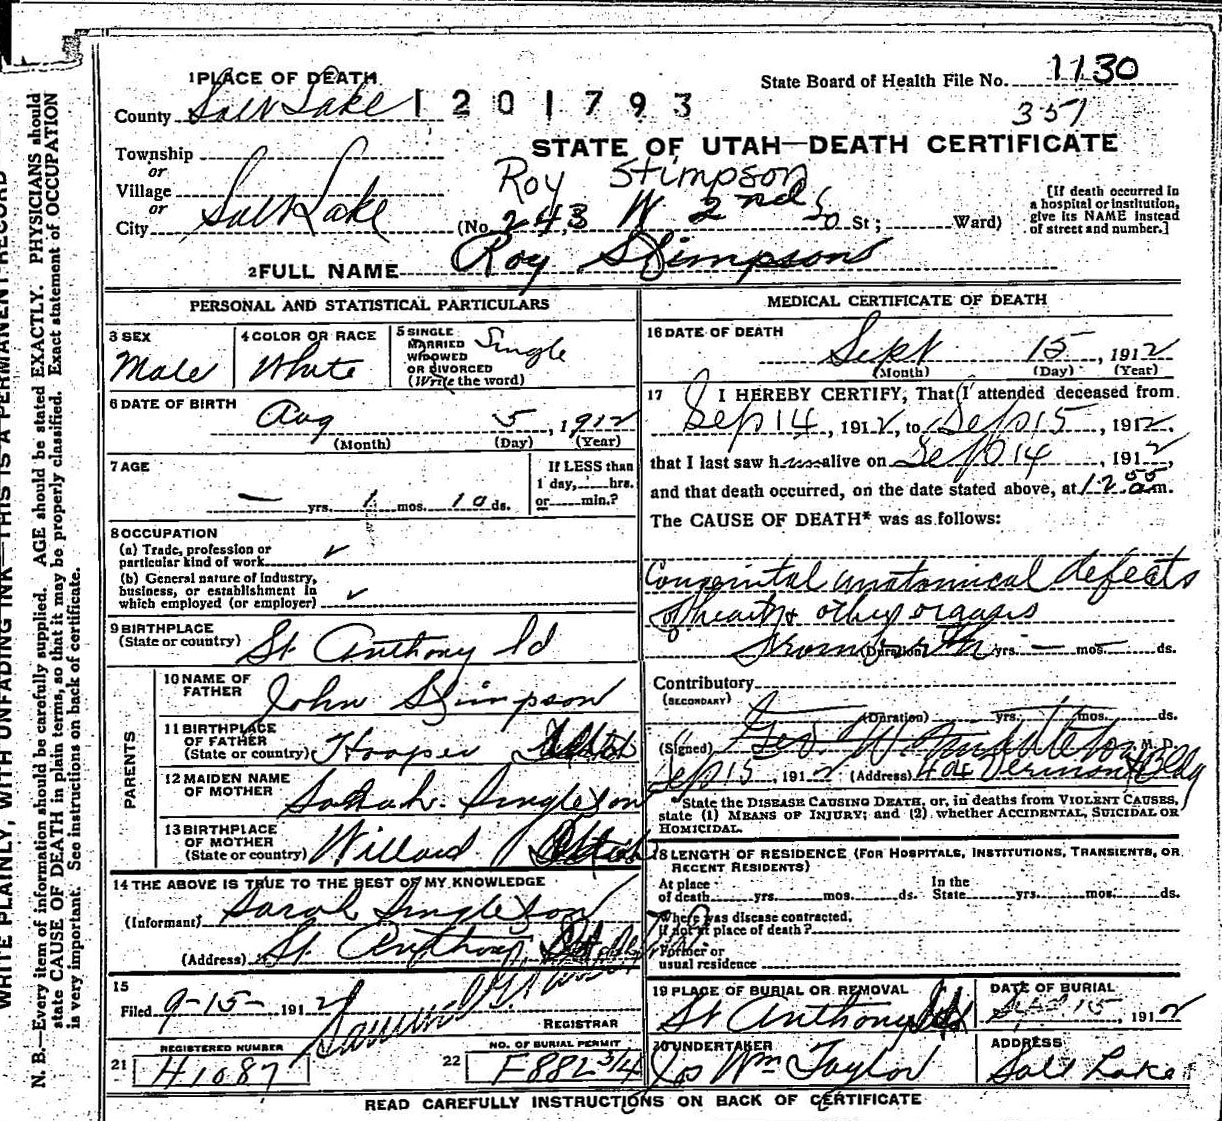 WRITE PLAINLY, WITH UNFADING INK—THIS IS A PERMANENT RECORD
N. B.—Every item of information should be carefully supplied. AGE should be stated EXACTLY. PHYSICIANS should
state CAUSE OF DEATH in plain terms, so that it may be properly classified. Exact statement of OCCUPATION
is very important. See instructions on back of certificate.
State Board of Health File No. 1130
357
1 PLACE OF DEATH
County Salt Lake 1201793
STATE OF UTAH—DEATH CERTIFICATE
Township
or
Village
or
City Salt Lake
Roy Stimpson
(No. 243 W 2nd So St; Ward)
[If death occurred in
a hospital or institution,
give its NAME instead
of street and number.]
2 FULL NAME Roy Stimpson
PERSONAL AND STATISTICAL PARTICULARS
3 SEX Male
4 COLOR OR RACE White
5 SINGLE
MARRIED
WIDOWED
OR DIVORCED
(Write the word) Single
6 DATE OF BIRTH
Aug 5, 1912
(Month) (Day) (Year)
7 AGE
— yrs. 1 mos. 10 ds.
If LESS than
1 day, hrs.
or min.?
8 OCCUPATION
(a) Trade, profession or
particular kind of work ✓
(b) General nature of industry,
business, or establishment in
which employed (or employer) ✓
9 BIRTHPLACE
(State or country) St Anthony Id
PARENTS
10 NAME OF
FATHER John Stimpson
11 BIRTHPLACE
OF FATHER
(State or country) Hooper Utah
12 MAIDEN NAME
OF MOTHER Sarah Singleton
13 BIRTHPLACE
OF MOTHER
(State or country) Willard Utah
14 THE ABOVE IS TRUE TO THE BEST OF MY KNOWLEDGE
(Informant) Sarah Singleton
(Address) St Anthony
15
Filed 9-15- 1912
REGISTRAR
REGISTERED NUMBER
21 H1087
NO. OF BURIAL PERMIT
22 F882 3/4
MEDICAL CERTIFICATE OF DEATH
16 DATE OF DEATH
Sept 15, 1912
(Month) (Day) (Year)
17 I HEREBY CERTIFY, That I attended deceased from
Sep 14, 1912, to Sep 15, 1912,
that I last saw him alive on Sep 14, 1912,
and that death occurred, on the date stated above, at 12 55 a.m.
The CAUSE OF DEATH* was as follows:
Congenital anatomical defects
of heart & other organs
from birth (Duration) yrs. — mos. — ds.
Contributory
(SECONDARY)
(Duration) yrs. mos. ds.
(Signed) Geo. W. Middleton, M. D.
Sep 15, 1912 (Address) 404 Vermont Bldg
*State the DISEASE CAUSING DEATH, or, in deaths from VIOLENT CAUSES,
state (1) MEANS OF INJURY; and (2) whether ACCIDENTAL, SUICIDAL OR
HOMICIDAL.
18 LENGTH OF RESIDENCE (FOR HOSPITALS, INSTITUTIONS, TRANSIENTS, OR
RECENT RESIDENTS)
At place
of death yrs. mos. ds. In the
State yrs. mos. ds.
Where was disease contracted,
if not at place of death?
Former or
usual residence
19 PLACE OF BURIAL OR REMOVAL
St Anthony
DATE OF BURIAL
Sept 15, 1912
20 UNDERTAKER
Jos Wm Taylor
ADDRESS
Salt Lake
READ CAREFULLY INSTRUCTIONS ON BACK OF CERTIFICATE